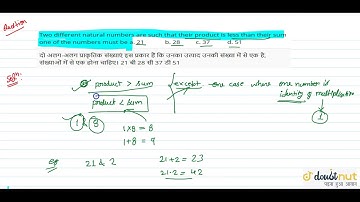 Question
Two different natural numbers are such that their product is less than their sum
one of the numbers must be a. 21 b. 28 c. 37 d. 51
दो अलग-अलग प्राकृतिक संख्याएं इस प्रकार हैं कि उनका उत्पाद उनकी संख्या में से एक है,
संख्याओं में से एक होना चाहिए। 21 बी 28 सी 37 डी 51
Soln.
product > sum except one case where one number is
product < sum identity of multiplication
1 & 8 1
1×8 = 8
1+8 = 9
eg 21 & 2 21+2 = 23
21·2 = 42
doubtnut
पढ़ना हुआ आसान